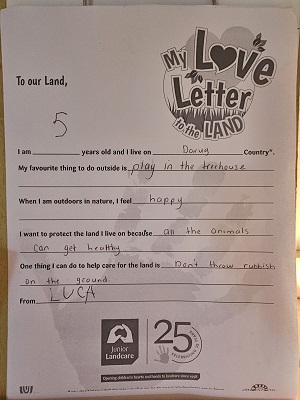 My Love
Letter
to the LAND
To our Land,
5
I am years old and I live on Darug Country*.
My favourite thing to do outside is play in the treehouse
When I am outdoors in nature, I feel happy
I want to protect the land I live on because all the animals
can get healthy
One thing I can do to help care for the land is Don't throw rubbish
on the ground.
From LUCA
Junior
Landcare
25